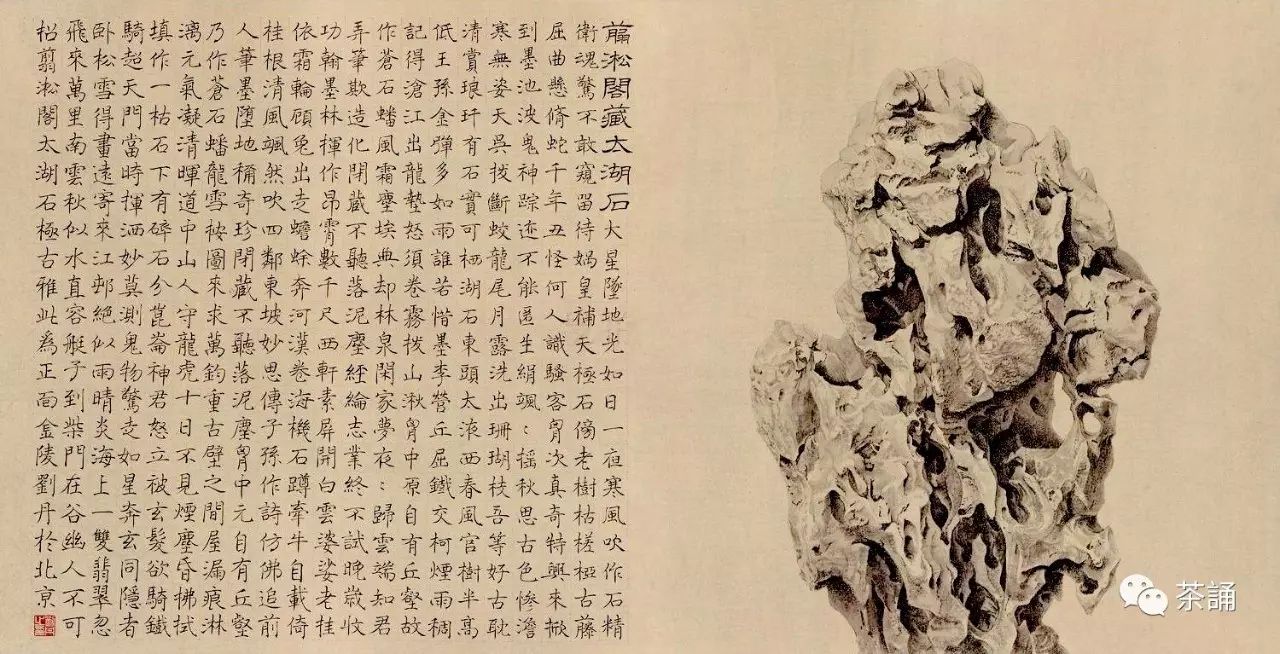 翦淞閣藏太湖石 大星墜地光如日一夜寒風吹作石精
衛魂驚不敢窺留待媧皇補天極石傍老樹枯槎枒古藤
屈曲懸脩蛇千年丑怪何人識騷客胷次真奇特興來掀
到墨池波鬼神踪迹不能匿生絹颯〻搖秋思古色慘澹
寒無姿天吳拔斷蛟龍尾月露洗出珊瑚枝吾等好古耽
清賞琅玕有石實可栖湖石東頭太液西春風官樹半高
低王孫金彈多如雨誰若惜墨李營丘屈鐵交柯煙雨稠
記得滄江出龍蟄怒須卷霧拔山湫胷中原自有丘壑故
作蒼石蟠風霜塵埃典却林泉閑家夢夜〻歸雲端知君
弄筆欺造化閉藏不聽落泥塵經綸志業終不試晚歲收
功翰墨林揮作昂霄數千尺西軒素屏開白雲婆娑老桂
依霜輪顧兔出走蟾蜍奔河漢卷海機石蹲牽牛自載倚
桂根清風颯然吹四鄰東坡妙思傳子孫作詩仿佛追前
人筆墨墮地稱奇珍閉藏不聽落泥塵胷中元自有丘壑
乃作蒼石蟠龍雪桉圖來求萬鈞重古壁之間屋漏痕淋
漓元氣凝清暉道中山人守龍虎十日不見煙塵昏拂拭
填作一枯石下有碎石分崑崙神君怒立被玄髮欲騎鐵
騎超天門當時揮洒妙莫測鬼物驚走如星奔玄同隱者
卧松雪得畫遠寄來江邨絕似雨晴炎海上一雙翡翠忽
飛來萬里南雲秋似水直容艇子到柴門在谷幽人不可
招翦淞閣太湖石極古雅此為正面金陵劉丹於北京
茶誦